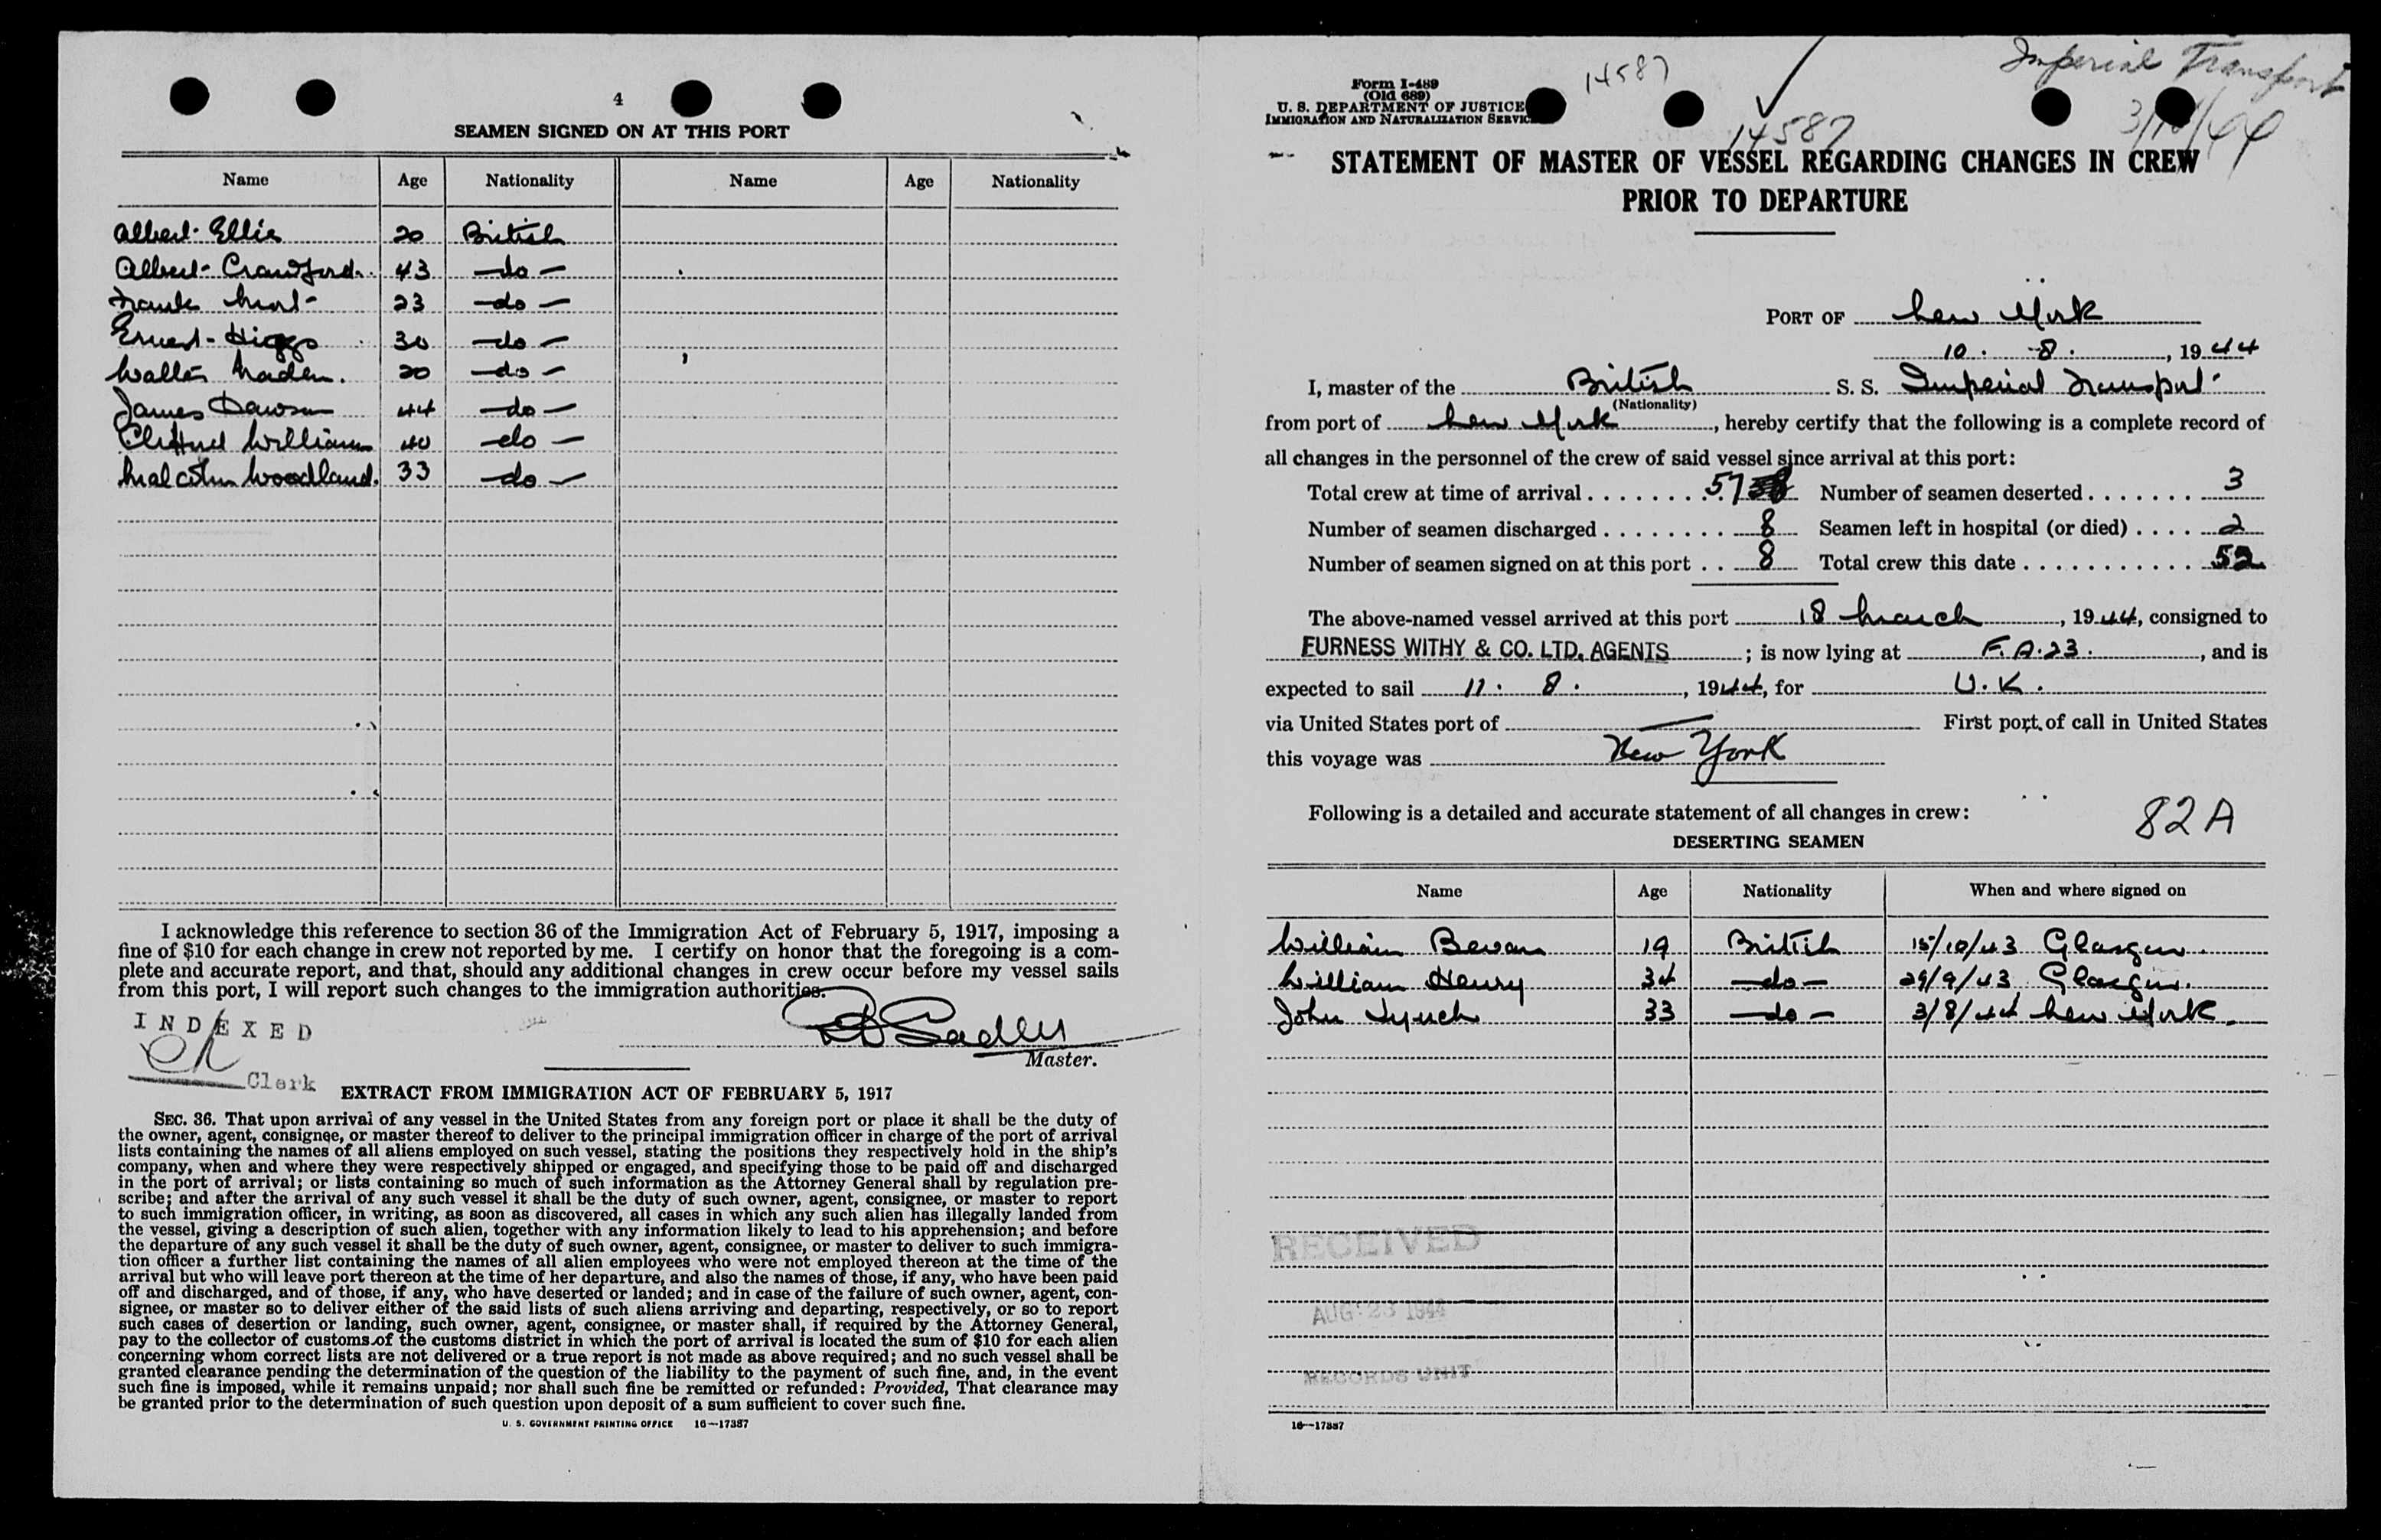 4
SEAMEN SIGNED ON AT THIS PORT
Name Age Nationality Name Age Nationality
Albert Ellis 20 British
Albert Crawford. 43 -do-
Frank 23 -do-
Ernest Higgs 30 -do-
Walter Maden. 20 -do-
James Dawson 44 -do-
Clifford William 40 -do-
Malcolm Woodland. 33 -do-
I acknowledge this reference to section 36 of the Immigration Act of February 5, 1917, imposing a
fine of $10 for each change in crew not reported by me. I certify on honor that the foregoing is a com-
plete and accurate report, and that, should any additional changes in crew occur before my vessel sails
from this port, I will report such changes to the immigration authorities.
INDEXED
Sadler
Master.
Clerk
EXTRACT FROM IMMIGRATION ACT OF FEBRUARY 5, 1917
SEC. 36. That upon arrival of any vessel in the United States from any foreign port or place it shall be the duty of
the owner, agent, consignee, or master thereof to deliver to the principal immigration officer in charge of the port of arrival
lists containing the names of all aliens employed on such vessel, stating the positions they respectively hold in the ship's
company, when and where they were respectively shipped or engaged, and specifying those to be paid off and discharged
in the port of arrival; or lists containing so much of such information as the Attorney General shall by regulation pre-
scribe; and after the arrival of any such vessel it shall be the duty of such owner, agent, consignee, or master to report
to such immigration officer, in writing, as soon as discovered, all cases in which any such alien has illegally landed from
the vessel, giving a description of such alien, together with any information likely to lead to his apprehension; and before
the departure of any such vessel it shall be the duty of such owner, agent, consignee, or master to deliver to such immigra-
tion officer a further list containing the names of all alien employees who were not employed thereon at the time of the
arrival but who will leave port thereon at the time of her departure, and also the names of those, if any, who have been paid
off and discharged, and of those, if any, who have deserted or landed; and in case of the failure of such owner, agent, con-
signee, or master so to deliver either of the said lists of such aliens arriving and departing, respectively, or so to report
such cases of desertion or landing, such owner, agent, consignee, or master shall, if required by the Attorney General,
pay to the collector of customs of the customs district in which the port of arrival is located the sum of $10 for each alien
concerning whom correct lists are not delivered or a true report is not made as above required; and no such vessel shall be
granted clearance pending the determination of the question of the liability to the payment of such fine, and, in the event
such fine is imposed, while it remains unpaid; nor shall such fine be remitted or refunded: Provided, That clearance may
be granted prior to the determination of such question upon deposit of a sum sufficient to cover such fine.
U. S. GOVERNMENT PRINTING OFFICE 16—17387
Form I-489
(Old 689)
U. S. DEPARTMENT OF JUSTICE
IMMIGRATION AND NATURALIZATION SERVICE
14587
14587
Imperial Transport
3/18/44
STATEMENT OF MASTER OF VESSEL REGARDING CHANGES IN CREW
PRIOR TO DEPARTURE
PORT OF New York
10. 8., 1944
I, master of the British S. S. Imperial Transport
(Nationality)
from port of New York, hereby certify that the following is a complete record of
all changes in the personnel of the crew of said vessel since arrival at this port:
Total crew at time of arrival 57 Number of seamen deserted 3
Number of seamen discharged 8 Seamen left in hospital (or died) 2
Number of seamen signed on at this port 8 Total crew this date 52
The above-named vessel arrived at this port 18 March, 1944, consigned to
FURNESS WITHY & CO. LTD. AGENTS; is now lying at F.A.23., and is
expected to sail 11. 8., 1944, for U.K.
via United States port of — First port of call in United States
this voyage was New York
Following is a detailed and accurate statement of all changes in crew:
82A
DESERTING SEAMEN
Name Age Nationality When and where signed on
William Bevan 19 British 15/10/43 Glasgow.
William Henry 34 -do- 29/9/43 Glasgow.
John Lynch 33 -do- 3/8/44 New York.
RECEIVED
AUG 23 1944
RECORDS UNIT
16—17387